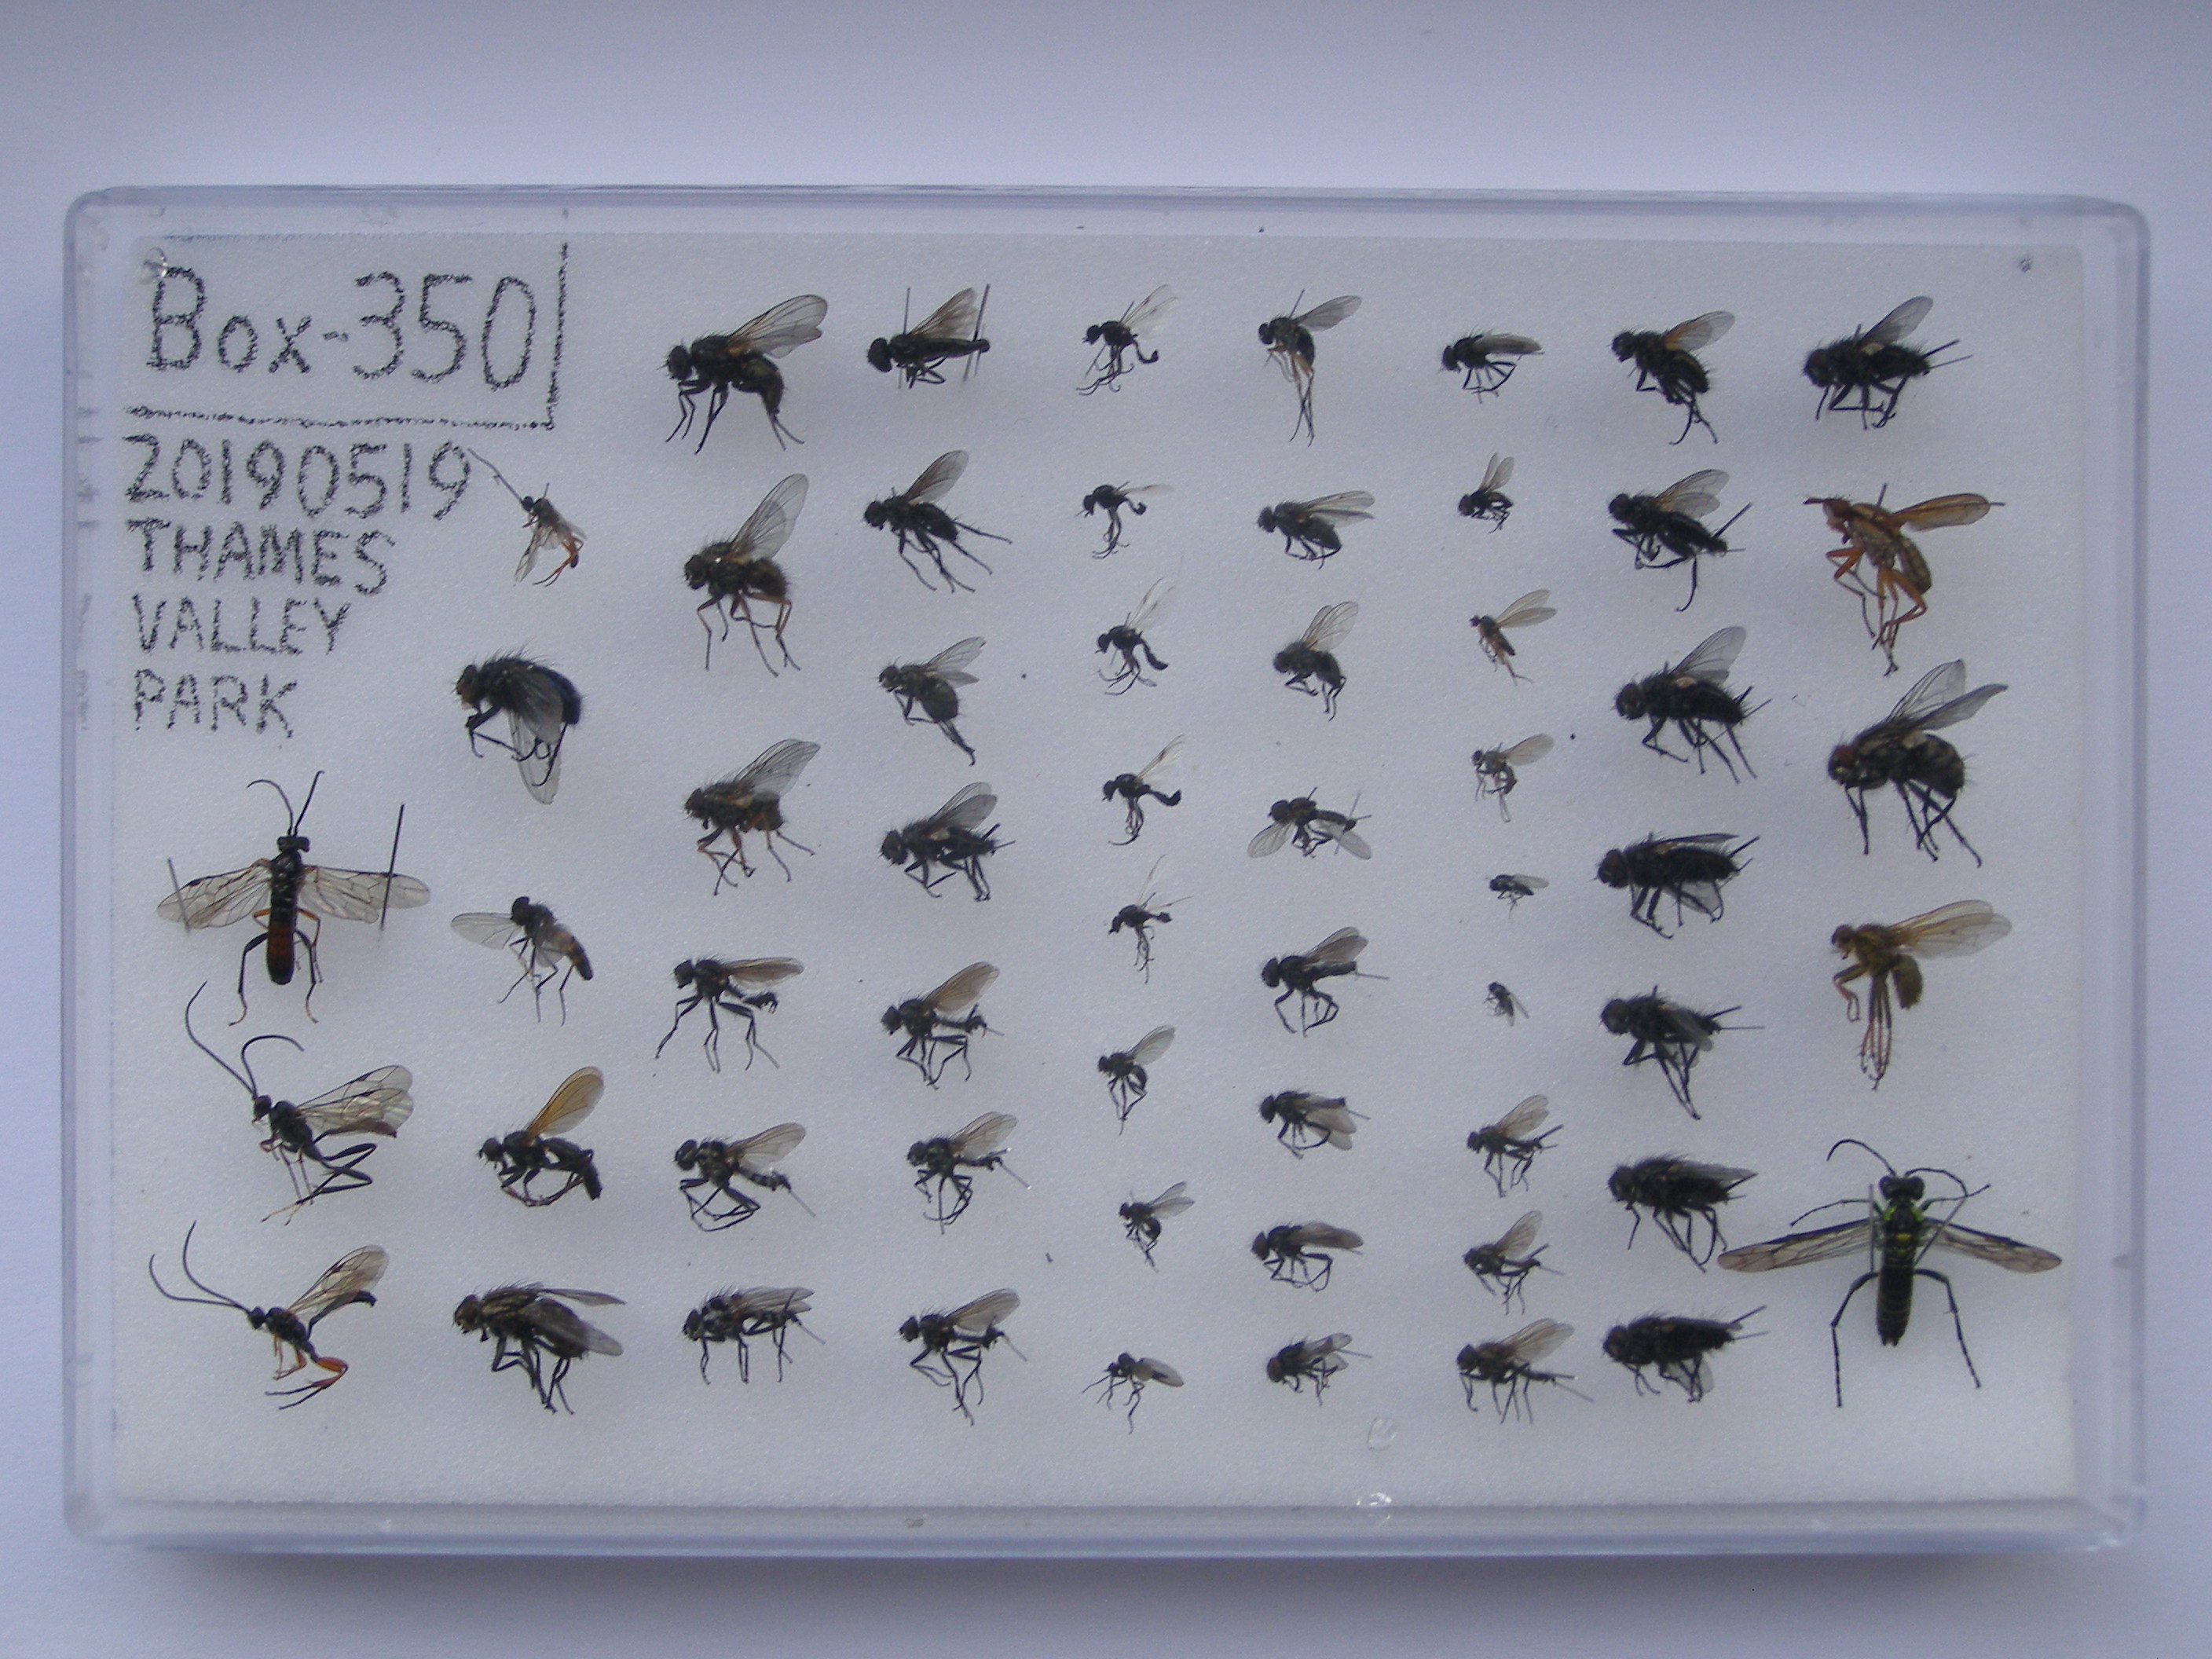 Box-350
20190519
THAMES
VALLEY
PARK